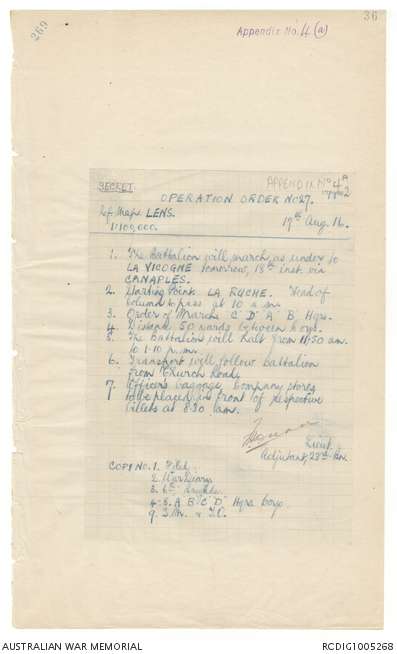 36
269
Appendix No. 4 (a)
SECRET.
APPENDIX No 4A
OPERATION ORDER No 27.
Ref Maps LENS.
1/100,000.
17th Aug. 16.
1. The Battalion will march as under to
LA VICOGNE tomorrow, 18th inst. via
CANAPLES.
2. Starting Point LA RUCHE. Head of
Column to pass at 10 a.m.
3. Order of March C D A B Hqrs.
4. Distance 50 yards between coys.
5. The Battalion will halt from 11.50 am.
to 1.10 p.m.
6. Transport will follow battalion
from Church Road.
7. Officers baggage, Company stores
to be placed in front of respective
billets at 8.30 am.
Lieut.
Adjutant, 28th Bn.
COPY No. 1. Filed.
2. War Diary
3. 6th Brigade
4-8. A B C D Hqrs Coys
9. T.M. & T.O.
AUSTRALIAN WAR MEMORIAL
RCDIG1005268